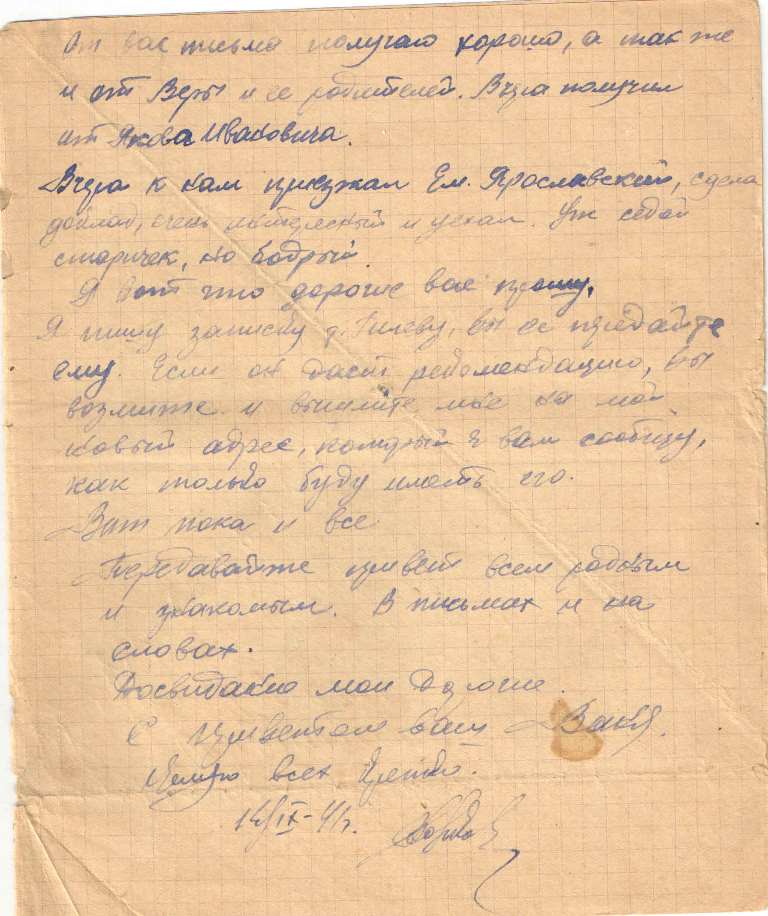 От вас письма получаю хорошо, а так же
и от Веры и ее родителей. Вчера получил
от Якова Ивановича.
Вчера к нам приезжал Ем. Ярославский, сдела
доклад, очень интересный и уехал. Уж седой
старичек, но бодрый.
Я вот что дорогие вас прошу.
Я пишу записку т. Гилеву, вы ее передайте
ему. Если он даст рекомендацию, вы
возмите и вышлите мне на мой
новый адрес, который я вам сообщу,
как только буду иметь его.
Вот пока и все
Передавайте привет всем родным
и знакомым. В письмах и на
словах.
Досвидание мои дорогие.
С приветом ваш Ваня.
Целую всех крепко.
14/IX-41г.